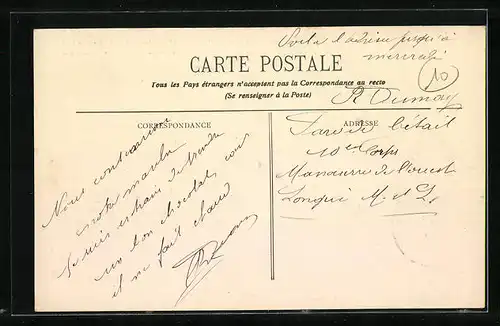 Voilà l'adresse jusqu'à
mercredi
CARTE POSTALE
10
Tous les Pays étrangers n'acceptent pas la Correspondance au recto
(Se renseigner à la Poste)
R Dumay
CORRESPONDANCE
ADRESSE
Nous continuons
notre
Je suis en train de prendre
un bon chocolat
et il fait chaud
Parc de bétail
10e Corps
Manœuvre de l'ouest
Longué M. et L.